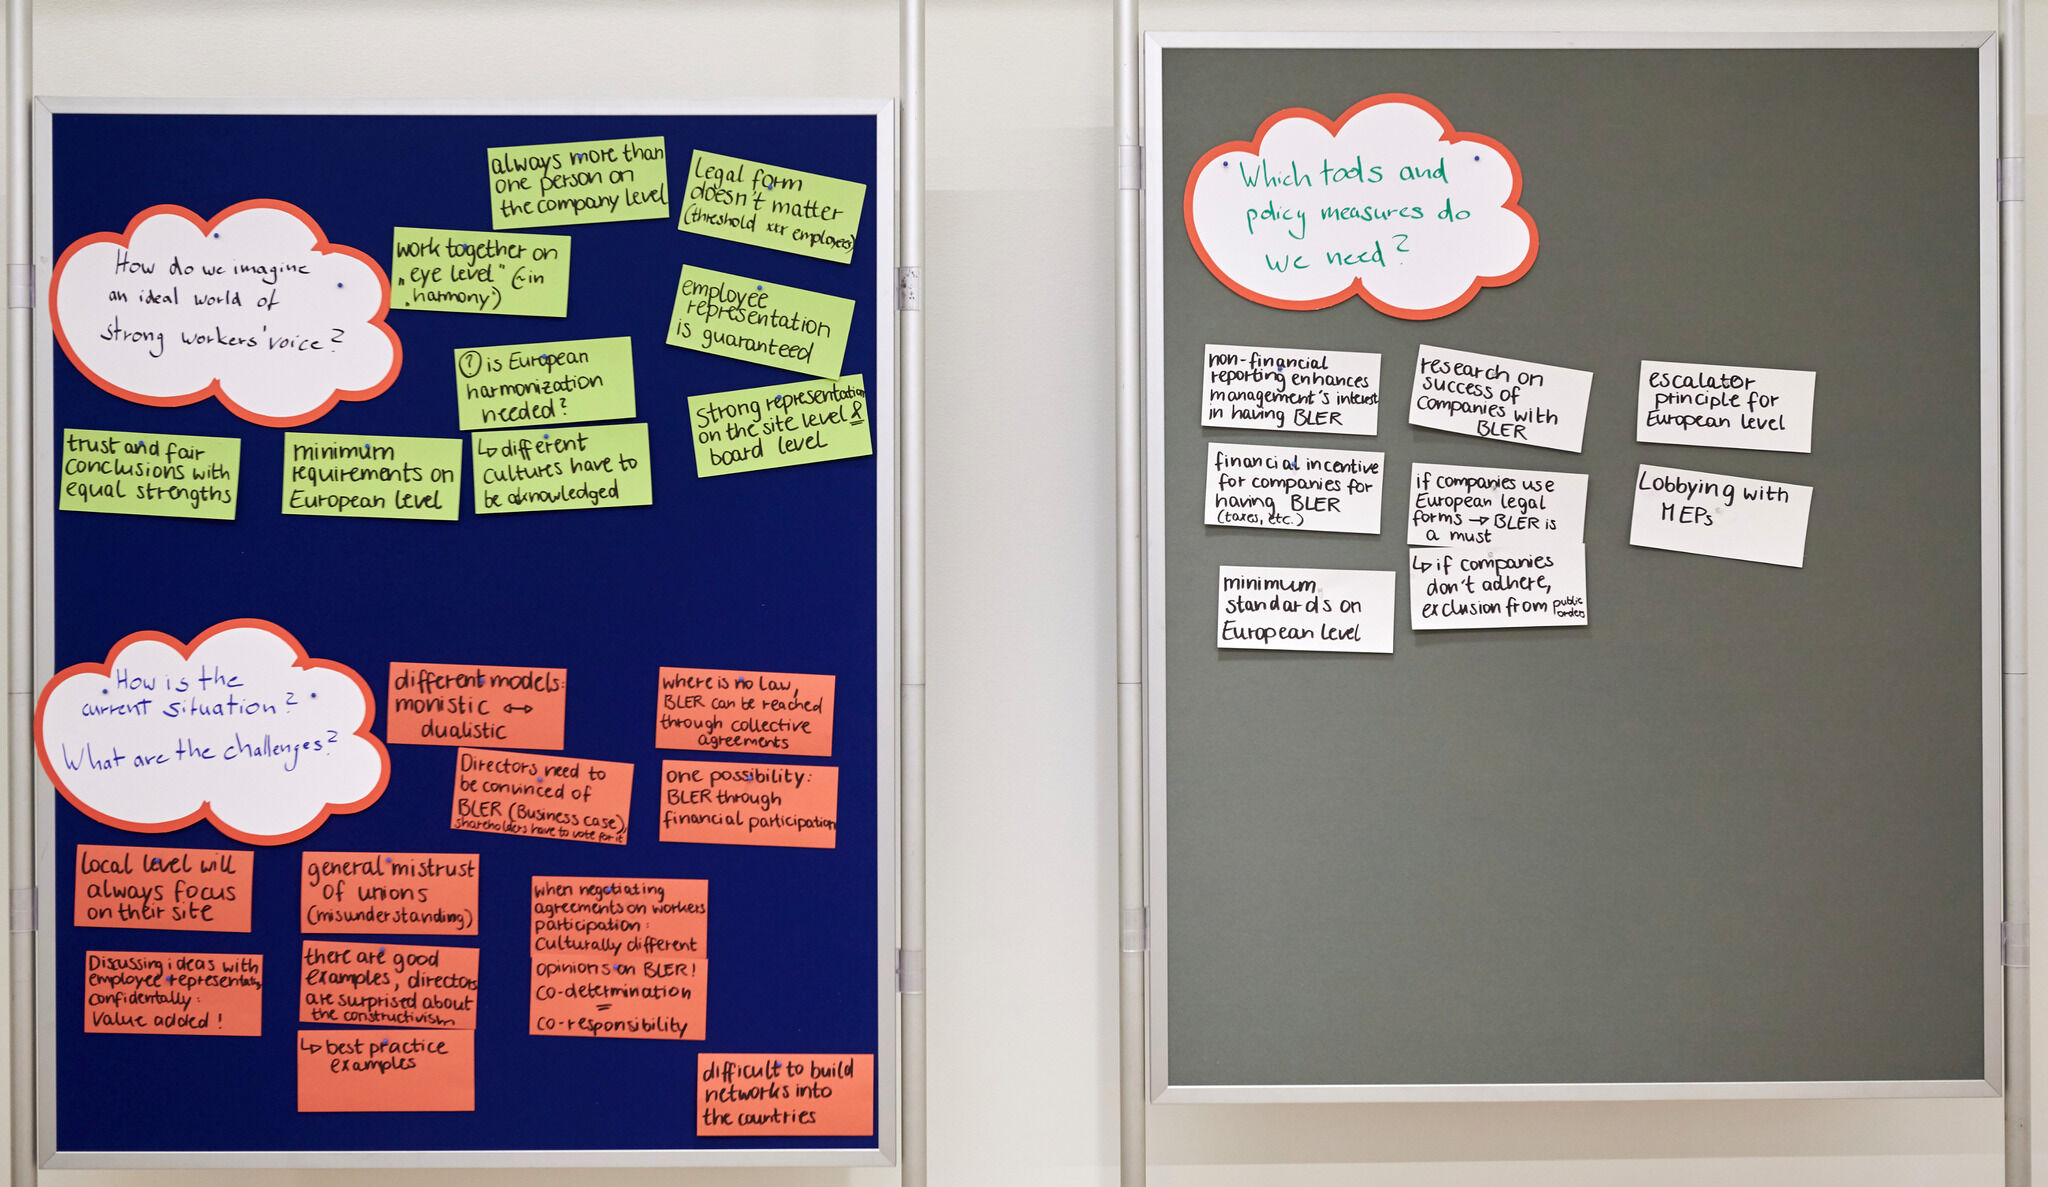 How do we imagine
an ideal world of
strong workers' voice?
always more than
one person on
the company level
Legal form
doesn't matter
(threshold xxx employees)
work together on
„eye level" (~in
„harmony")
employee
representation
is guaranteed
? is European
harmonization
needed?
↳ different
cultures have to
be aknowledged
Strong representation
on the site level &
board level
trust and fair
conclusions with
equal strengths
minimum
requirements on
European level
How is the
current situation?
What are the challenges?
different models:
monistic ↔
dualistic
where is no law,
BLER can be reached
through collective
agreements
Directors need to
be convinced of
BLER (Business case),
shareholders have to vote for it
one possibility:
BLER through
financial participation
local level will
always focus
on their site
general mistrust
of unions
(misunderstanding)
when negotiating
agreements on workers
participation:
Culturally different
opinions on BLER!
co-determination
=
co-responsibility
Discussing ideas with
employee representativs
confidentally:
Value added!
there are good
examples, directors
are surprised about
the constructivism
↳ best practice
examples
difficult to build
networks into
the countries
Which tools and
policy measures do
we need?
non-financial
reporting enhances
management's interest
in having BLER
research on
success of
companies with
BLER
escalator
principle for
European level
financial incentive
for companies for
having BLER
(taxes, etc.)
if companies use
European legal
forms → BLER is
a must
↳ if companies
don't adhere,
exclusion from public
orders
Lobbying with
MEPs
minimum
standards on
European level